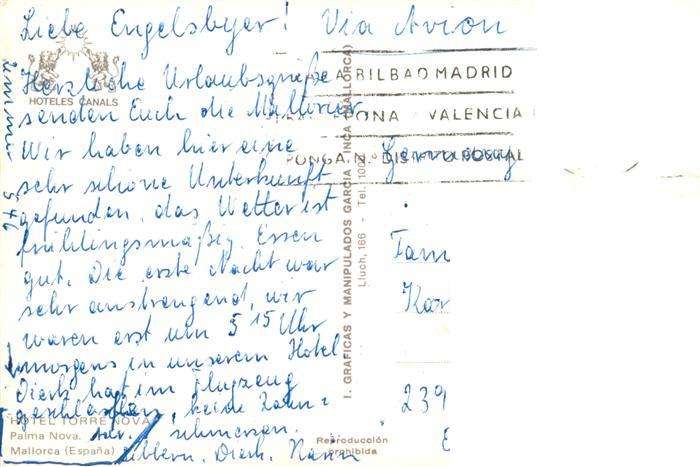 Liebe Engelsbyer! Via Avion
HOTELES CANALS
Zimmer 546
Herzliche Urlaubsgrüße
senden Euch die Mallorier
Wir haben hier eine
sehr schöne Unterkunft
gefunden, das Wetter ist
frühlingsmäßig. Essen
gut. Die erste Nacht war
sehr anstrengend, wir
waren erst um 5 15 Uhr
morgens in unserem Hotel
Dierk hat im Flugzeug
geschlafen, keine Zahn=
schmerzen.
HOTEL TORRE NOVA
Palma Nova.
Mallorca (España)
I. GRAFICAS Y MANIPULADOS GARCIA - INCA (MALLORCA)
Lluch, 166 - Tel.
BILBAO MADRID
ONA VALENCIA
PONGA N.º DISTRITO POSTAL
Germany
Fam
Kar
239
Reproducción
prohibida